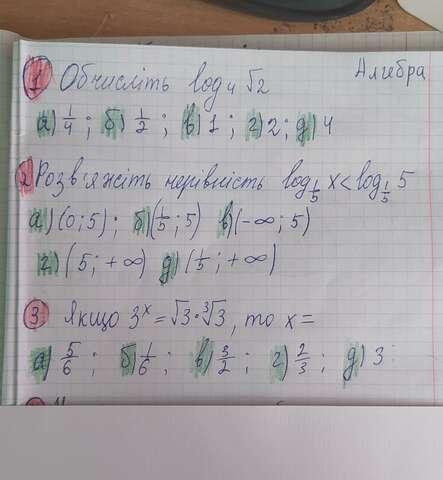 Алгебра
1 Обчисліть log₄ √2
а) 1/4 ; б) 1/2 ; в) 1 ; г) 2 ; д) 4
2 Розв'яжіть нерівність log_{1/5} x < log_{1/5} 5
а) (0; 5) ; б) (1/5 ; 5) в) (-∞; 5)
г) (5; +∞) д) (1/5 ; +∞)
3 Якщо 3ˣ = √3 · ³√3 , то x =
а) 5/6 ; б) 1/6 ; в) 3/2 ; г) 2/3 ; д) 3